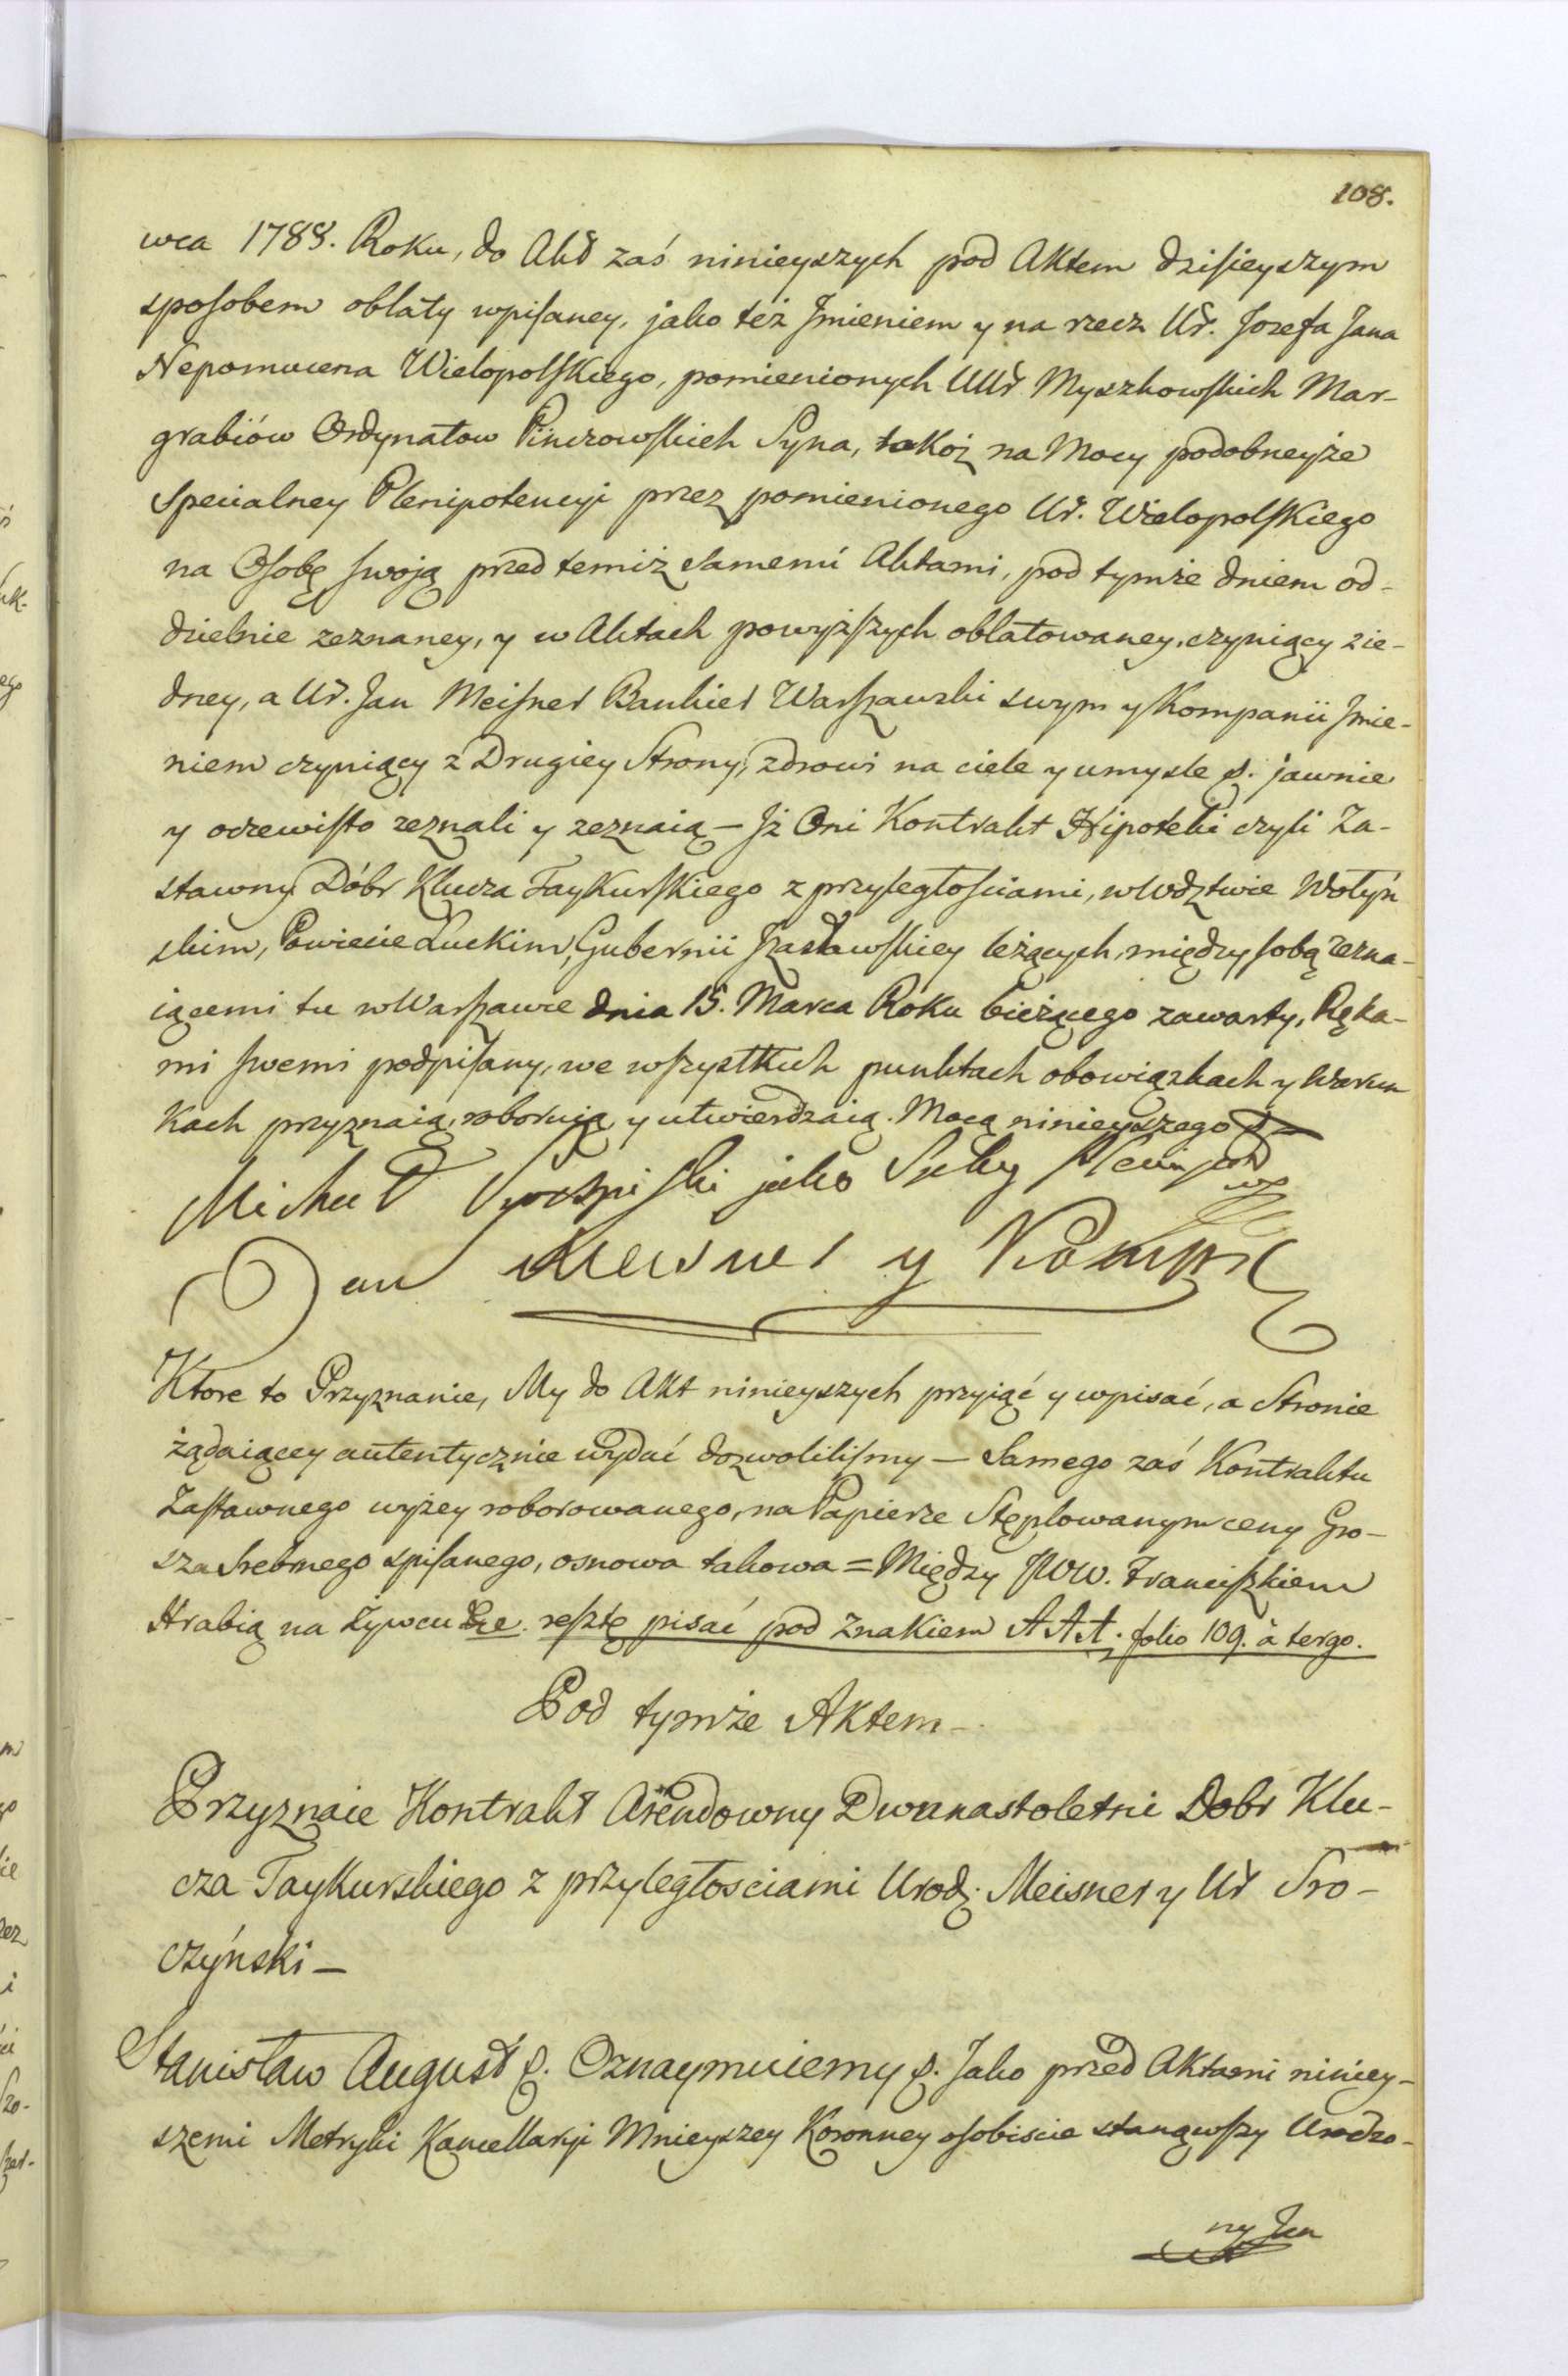 108.
wca 1788. Roku, do Akt zaś ninieyszych pod Aktem dzisieyszym
sposobem oblaty wpisaney, jako też Jmieniem y na rzecz Ur. Jozefa Jana
Nepomucena Wielopolskiego, pomienionych UUr. Myszkowskich Mar-
grabiów Ordynatow Pinczowskich Syna, takoż na Mocy podobneyże
Specialney Plenipotencyi przez pomienionego Ur. Wielopolskiego
na Osobę swoią przed temiż samemi Aktami, pod tymże dniem od-
dzielnie zeznaney, y w Aktach powyższych oblatowaney, czyniący z ie-
dney, a Ur. Jan Meisner Bankier Warszawski swym y Kompanii Jmie-
niem czyniący z Drugiey Strony, zdrowi na ciele y umysle &. jawnie
y oczewisto zeznali y zeznaią – Jż Oni Kontrakt Hipoteki czyli Za-
stawny Dóbr Klucza Taykurskiego z przyległościami, w Wdztwie Wołyń
skim, Powiecie Łuckim, Gubernii Jzasławskiey leżących, między sobą zezna-
iącemi tu w Warszawie dnia 15. Marca Roku bieżącego zawarty, Ręka-
mi swemi podpisany, we wszystkich punktach obowiązkach y Warun
kach przyznaią, roboruią y utwierdzaią. Mocą ninieyszego &
Michał jako
Jan Meisner y Komp
Ktore to Przyznanie, My do Akt ninieyszych przyiąć y wpisać, a Stronie
żądaiącey autentycznie wydać dozwoliliśmy – Samego zaś Kontraktu
Zastawnego wyżey roborowanego, na Papierze Stęplowanym ceny Gro-
sza Srebrnego spisanego, osnowa takowa = Między JWW. Franciszkiem
Hrabią na Żywcu &c. resztę pisać pod Znakiem AAA. folio 109. à tergo.
Pod tymże Aktem –
Przyznaie Kontrakt Arendowny Dwunastoletni Dobr Klu-
cza Taykurskiego z przyległosciami Urodz. Meisner y Ur Sro-
czyński –
Stanisław August &. Oznaymuiemy &. Jako przed Aktami niniey-
szemi Metryki Kancellaryi Mnieyszey Koronney osobiscie stanąwszy Urodzo-
ny Jan